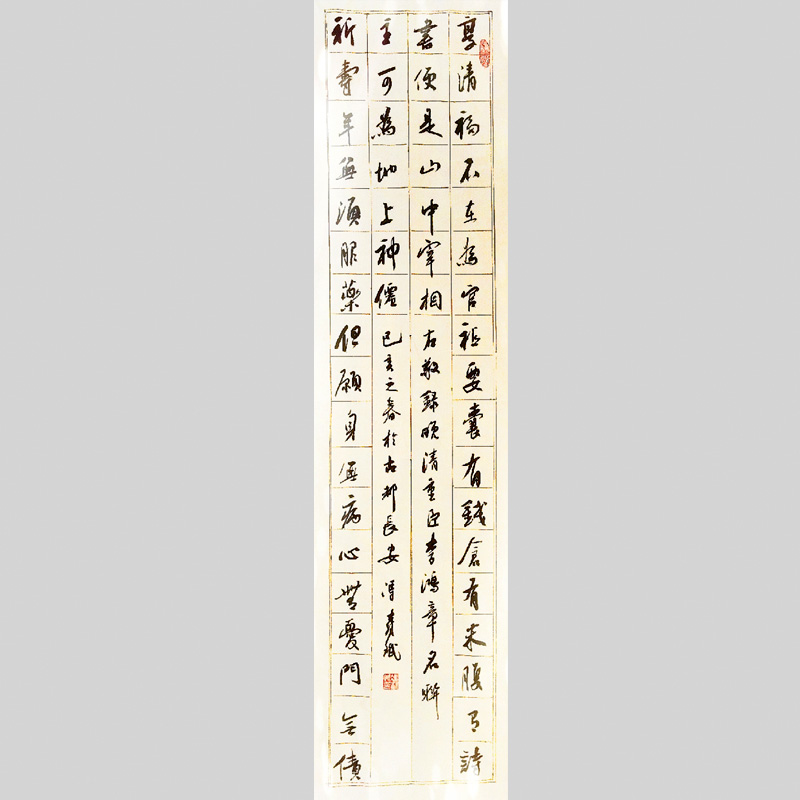 享清福不在為官祗要囊有錢倉有米腹有詩
書便是山中宰相 右敬錄晚清重臣李鴻章名聯
祈壽年無須服藥但願身無病心無憂門無債
主可為地上神僊 己亥之春於古都長安 馮